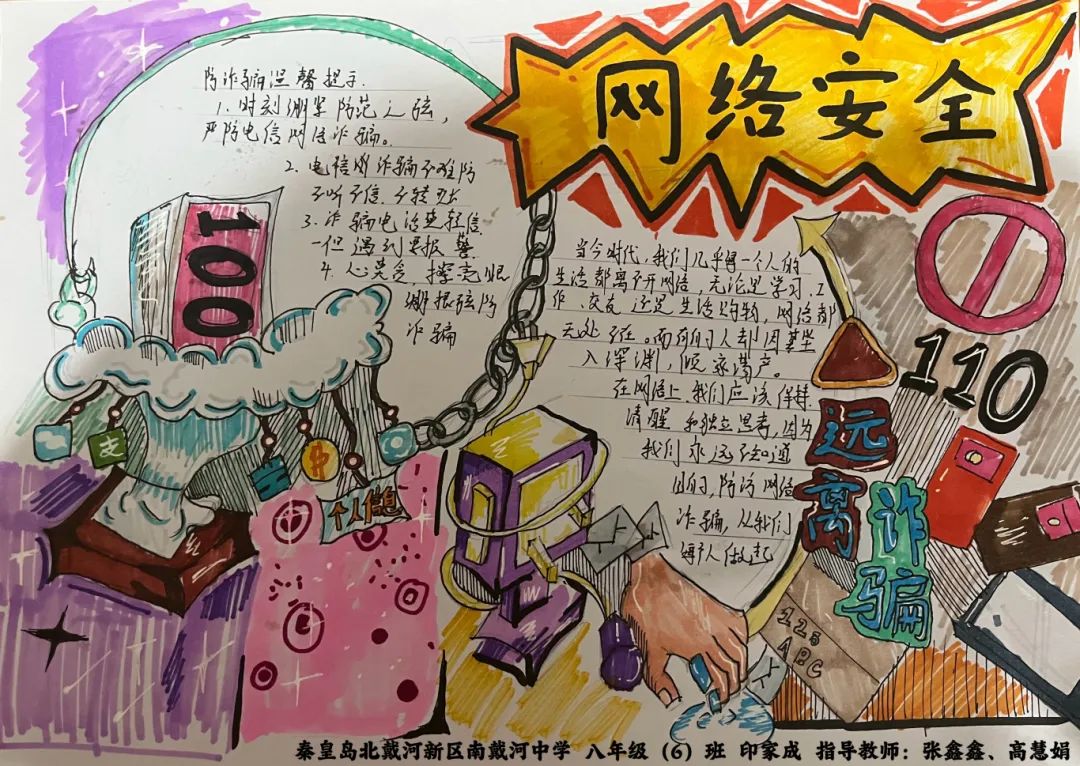 网络安全
防诈骗温馨提示.
1. 时刻绷紧防范之弦,
严防电信网络诈骗。
2. 电信网诈骗不难防
不听不信.不转账
3. 诈骗电话莫轻信
一但遇到早报警
4. 心莫贪 擦亮眼
绷根弦防
诈骗
当今时代,我们几乎每一个人的
生活都离不开网络,无论是学习、工
作、交友 还是生活购物,网络都
无处不在。而有的人却因
入深渊,倾家荡产。
在网络上,我们应该保持
清醒 和独立思考,因为
我们永远不知道
目的,防污网络
诈骗,从我们
每个人做起
100
支
个人信息
110
远
离
诈
骗
123
ABC
秦皇岛北戴河新区南戴河中学 八年级(6)班 印家成 指导教师:张鑫鑫、高慧娟